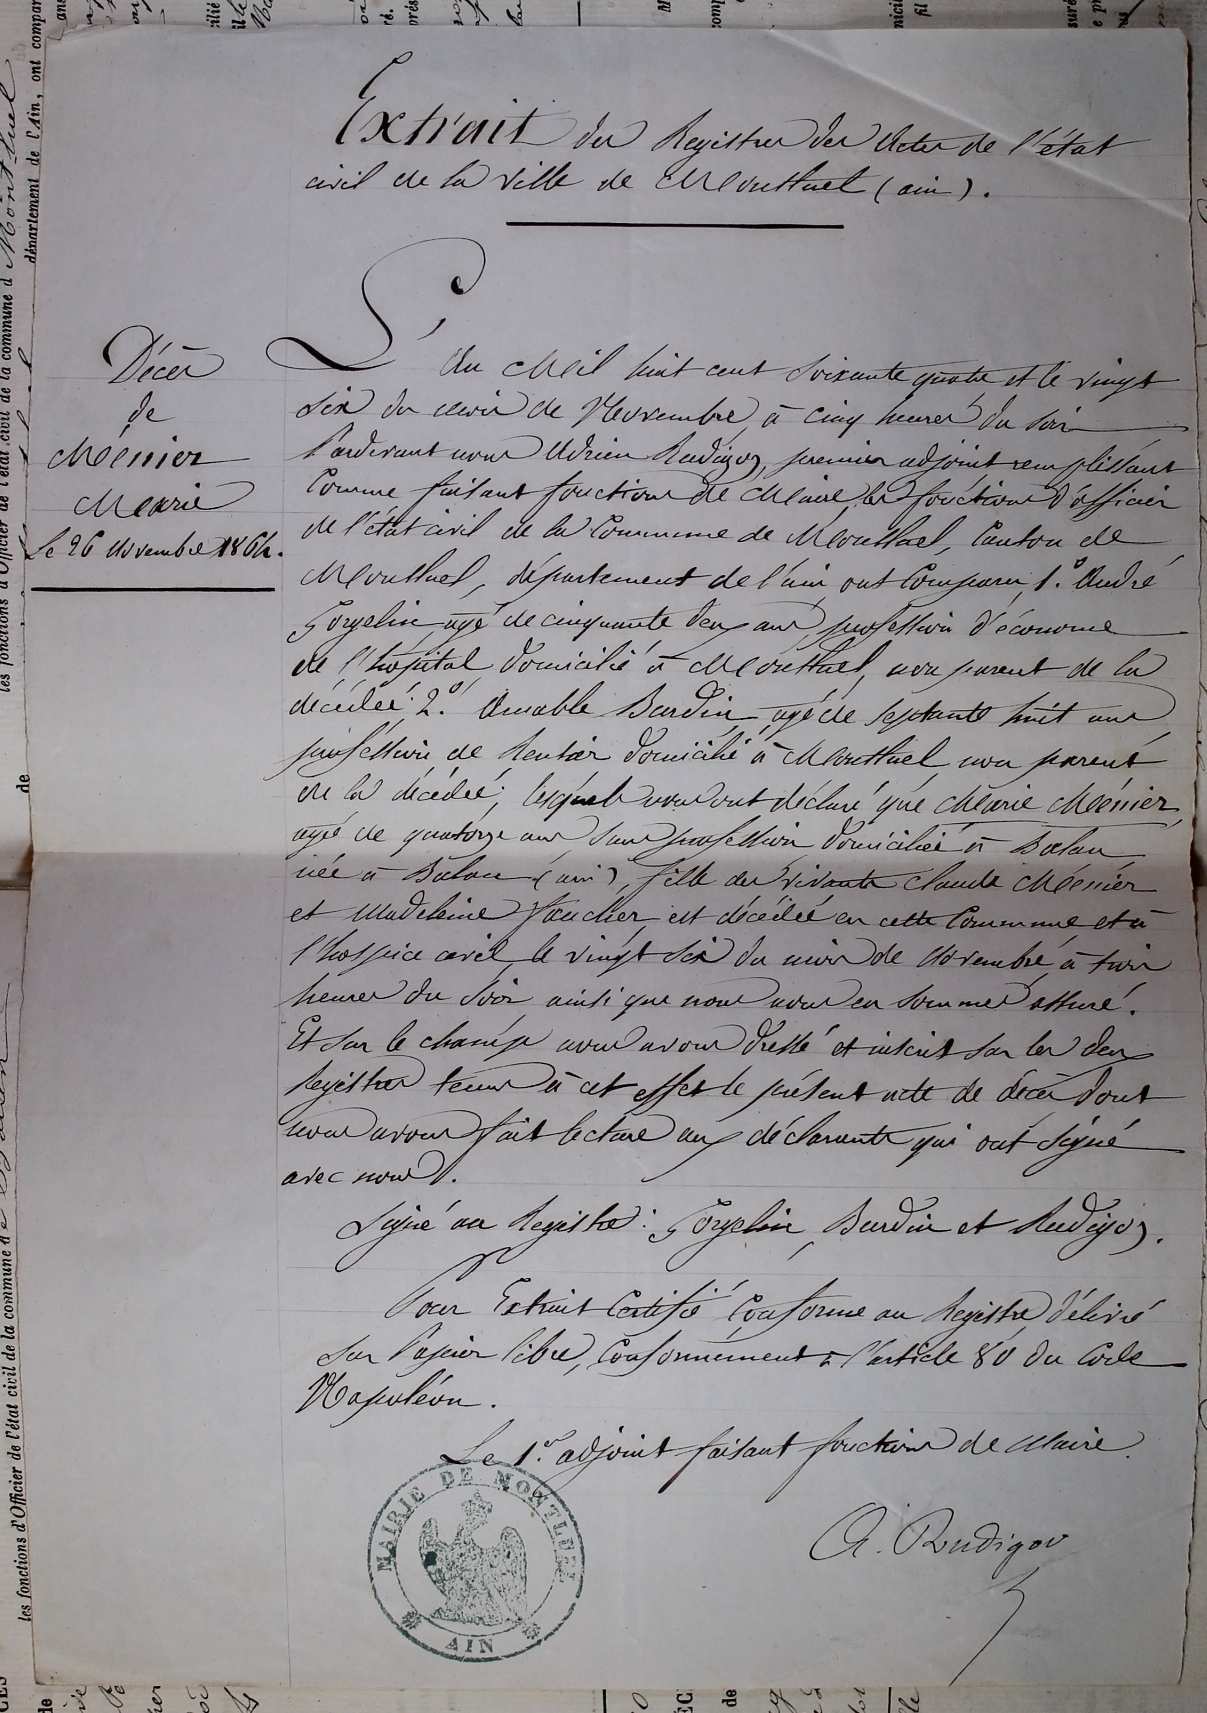 Extrait des Registres des Actes de l'état
civil de la ville de Montluel (ain).
Décès
de
Ménier
Marie
le 26 Novembre 1864.
L'An Mil huit cent soixante quatre et le vingt
six du mois de Novembre, à cinq heures du soir
Pardevant nous Adrien Rudigoz, premier adjoint remplissant
comme faisant fonctions de Maire, les fonctions d'officier
de l'état civil de la Commune de Montluel, Canton de
Montluel, département de l'ain, ont comparu, 1.° André
Gozelin, agé de cinquante deux ans, profession d'économe
de l'hopital, domicilié à Montluel, non parent de la
décédée; 2.° Amable Bardin, agé de septante huit ans,
profession de Rentier domicilié à Montluel, non parent
de la décédée; lesquels nous ont déclaré que Marie Ménier,
agée de quatorze ans, sans profession, domiciliée à Balan
née à Balan (ain), fille des vivants Claude Ménier
et Madeleine Faucher, est décédée en cette Commune et à
l'hospice civil, le vingt six du mois de Novembre, à trois
heures du soir, ainsi que nous nous en sommes assuré.
Et sur le champ nous avons dressé et inscrit sur les deux
Registres tenus à cet effet le présent acte de décès dont
nous avons fait lecture aux déclarants qui ont signé
avec nous.
Signé au Registre: Gozelin, Bardin et Rudigoz.
Pour Extrait Certifié Conforme au Registre, délivré
sur Papier libre, Conformément à l'article 80 du Code
Napoléon.
Le 1.er adjoint faisant fonctions de Maire.
A. Rudigoz
MAIRIE DE MONTLUEL
AIN